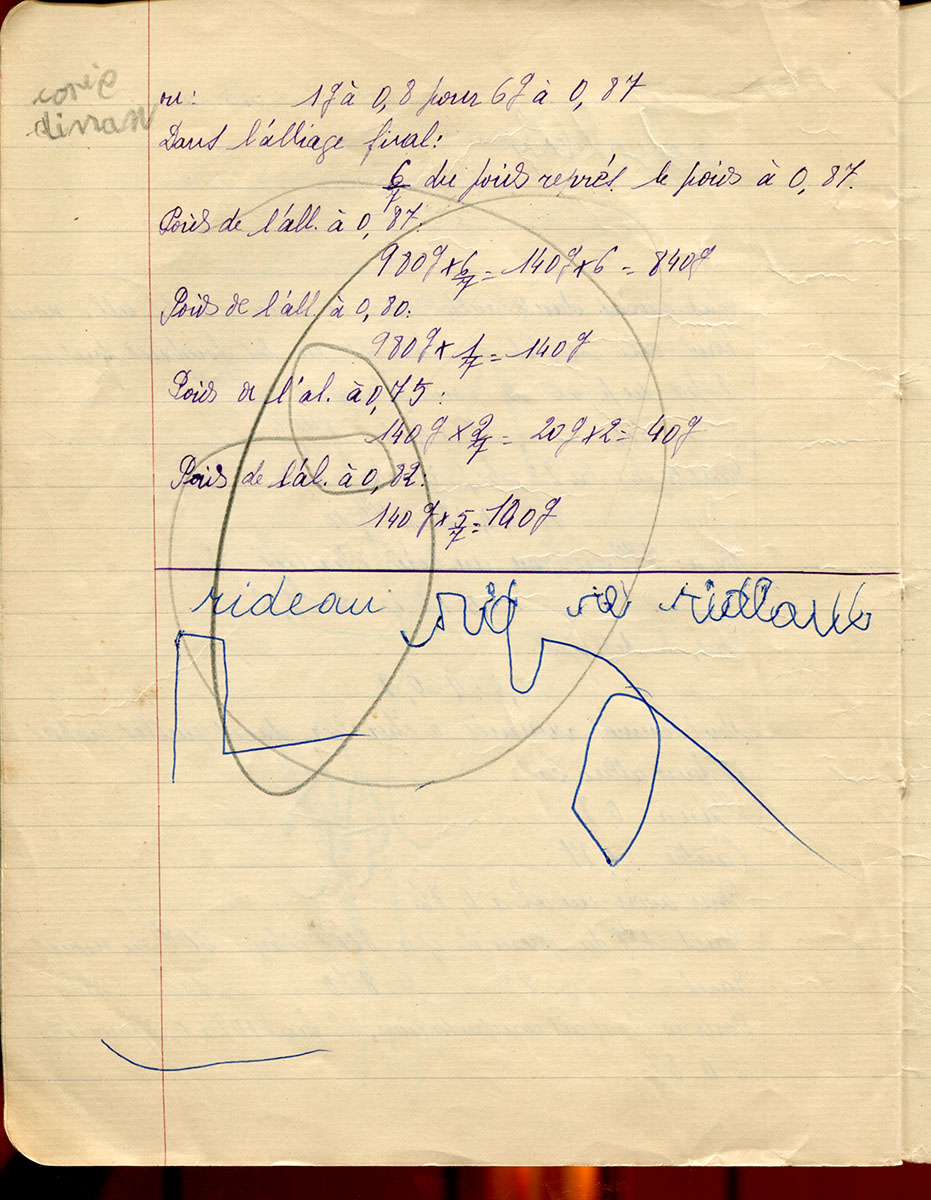 ou: 1g à 0,8 pour 6g à 0,87
Dans l'alliage final:
6/7 du poids représ. le poids à 0,87.
Poids de l'all. à 0,87:
980g x 6/7 = 140g x 6 = 840g
Poids de l'all. à 0,80:
980g x 1/7 = 140g
Poids de l'al. à 0,75:
140g x 2/7 = 20g x 2 = 40g
Poids de l'al. à 0,82:
140g x 5/7 = 100g
rideau rid